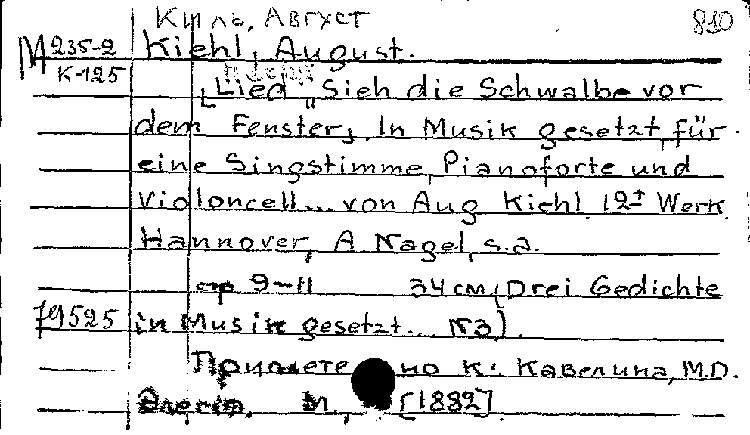 Киль, Август 810
М 235-2 Kiehl, August.
К-125
"Lied" Sieh die Schwalbe vor
dem Fenster, In Musik gesetzt für
eine Singstimme, Pianoforte und
Violoncell... von Aug Kiehl 12t Werk
Hannover, A Nagel, s.a.
стр 9-11 34 см (Drei Gedichte
79525 in Musik gesetzt... N3).
но к: Кавелина, M.D.
М., [1882]